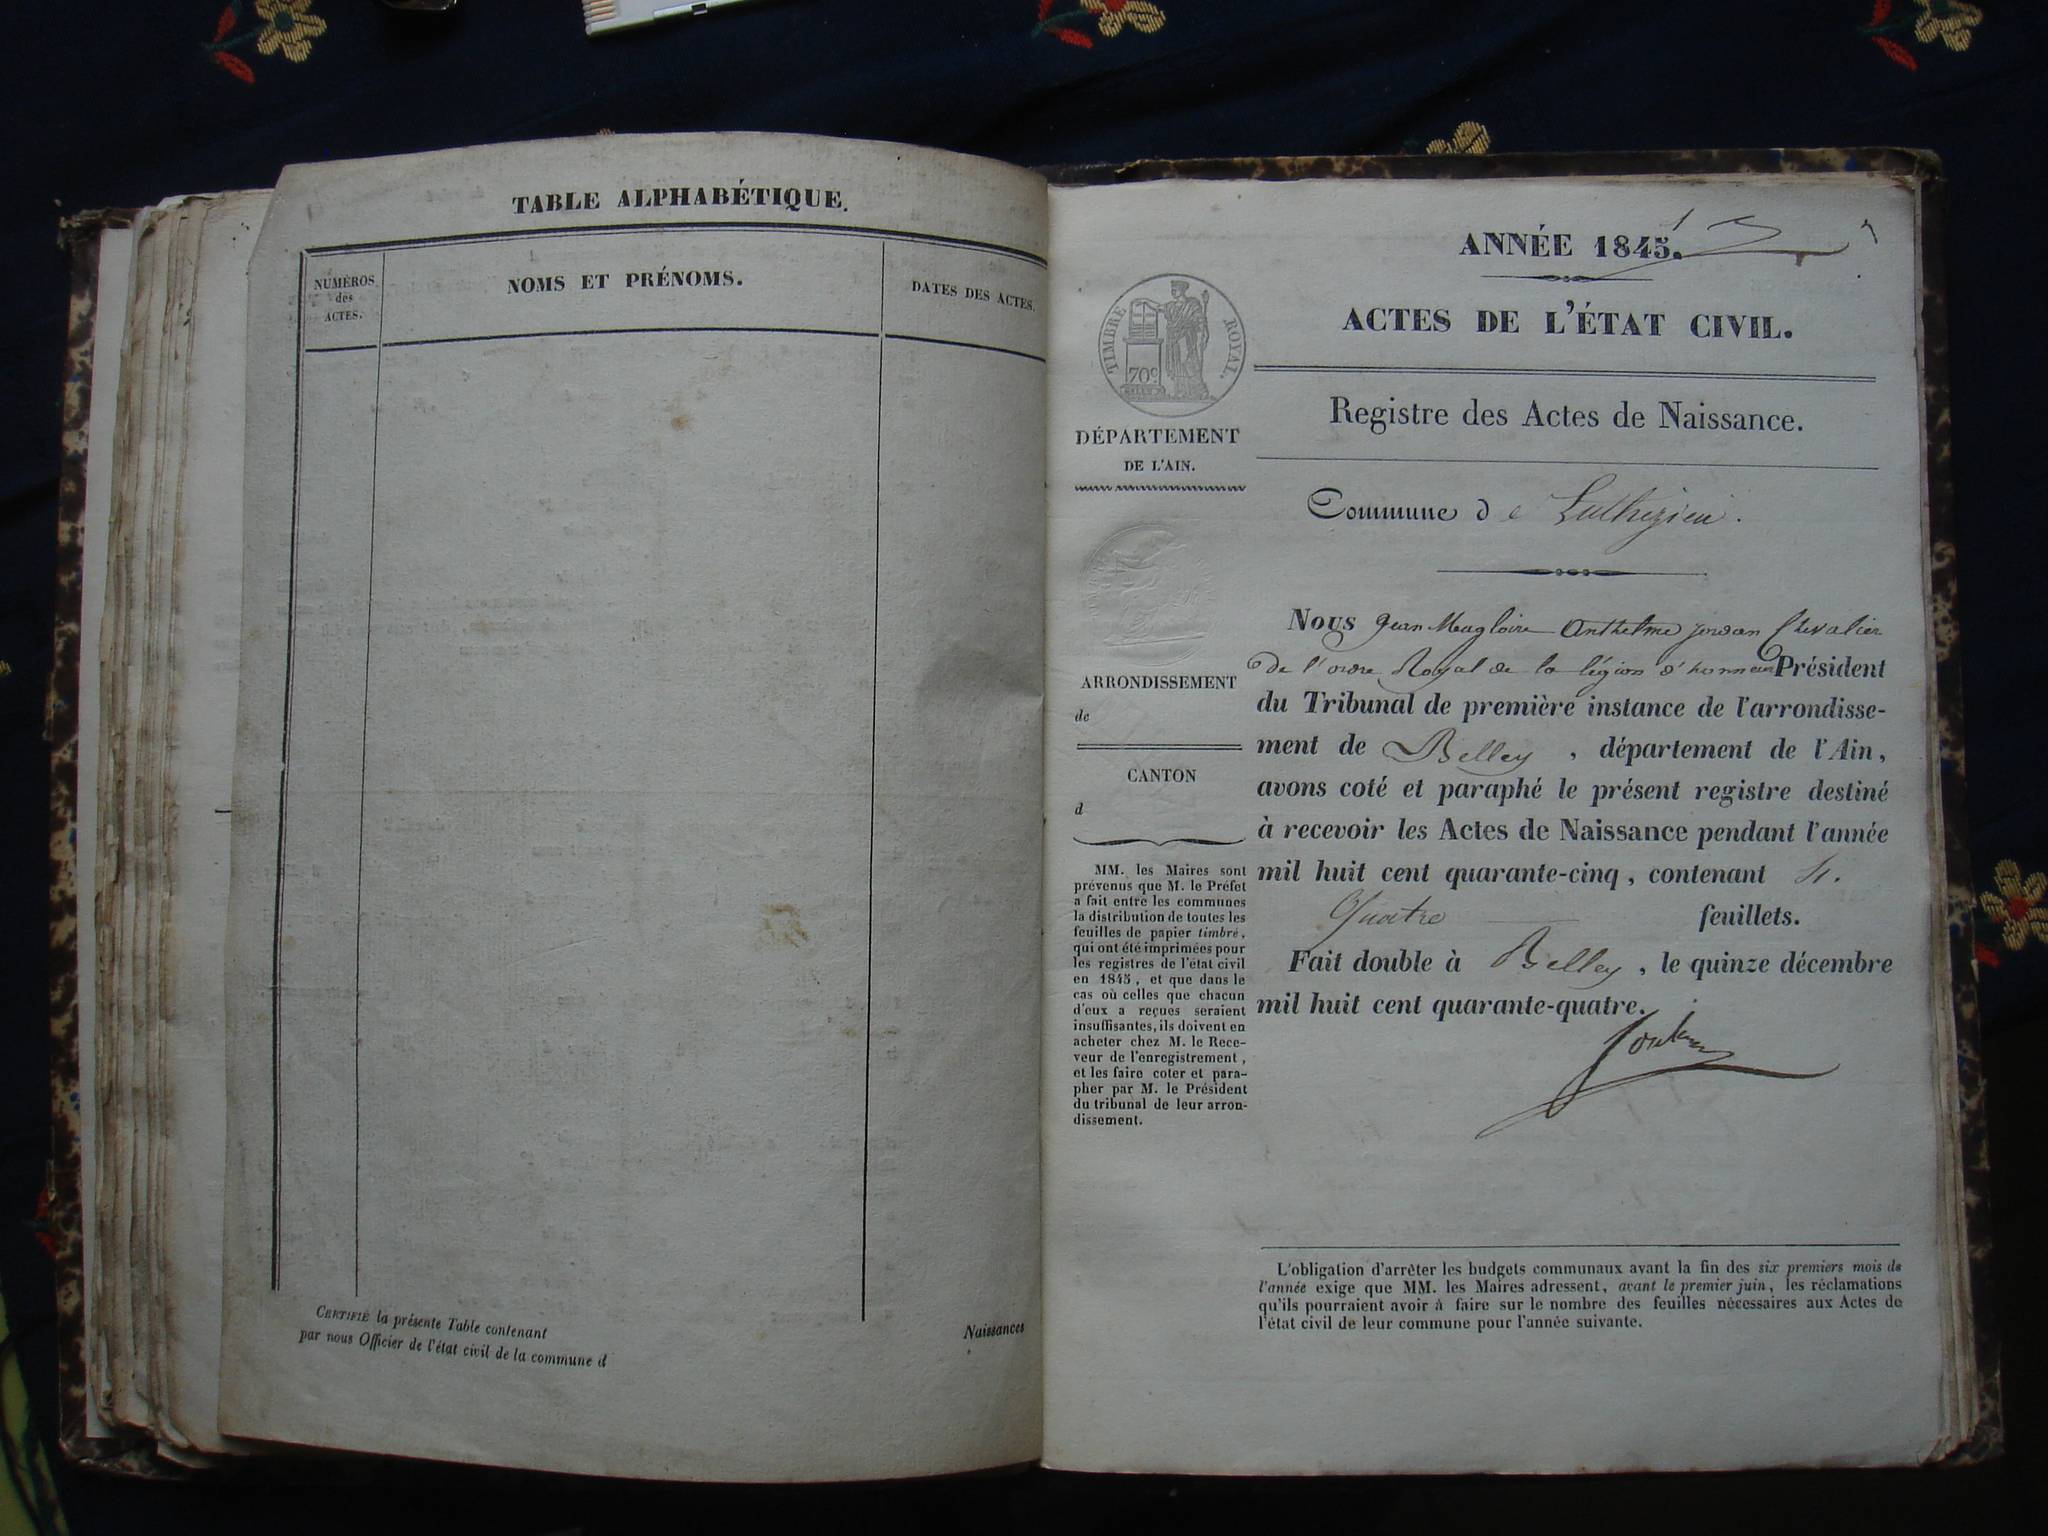 TABLE ALPHABÉTIQUE.
NUMÉROS
des
ACTES.
NOMS ET PRÉNOMS.
DATES DES ACTES.
CERTIFIÉ la présente Table contenant
Naissances
par nous Officier de l'état civil de la commune d
ANNÉE 1845.
ACTES DE L'ÉTAT CIVIL.
TIMBRE ROYAL.
70c
Registre des Actes de Naissance.
DÉPARTEMENT
DE L'AIN.
Commune de Luthezieu.
ARRONDISSEMENT
de
CANTON
d
MM. les Maires sont
prévenus que M. le Préfet
a fait entre les communes
la distribution de toutes les
feuilles de papier timbré,
qui ont été imprimées pour
les registres de l'état civil
en 1845, et que dans le
cas où celles que chacun
d'eux a reçues seraient
insuffisantes, ils doivent en
acheter chez M. le Rece-
veur de l'enregistrement,
et les faire coter et para-
pher par M. le Président
du tribunal de leur arron-
dissement.
Nous Jean Magloire Anthelme Jordan Chevalier
de l'ordre Royal de la légion d'honneur Président
du Tribunal de première instance de l'arrondisse-
ment de Belley, département de l'Ain,
avons coté et paraphé le présent registre destiné
à recevoir les Actes de Naissance pendant l'année
mil huit cent quarante-cinq, contenant 4.
Quatre feuillets.
Fait double à Belley, le quinze décembre
mil huit cent quarante-quatre.
Jordan
L'obligation d'arrêter les budgets communaux avant la fin des six premiers mois de
l'année exige que MM. les Maires adressent, avant le premier juin, les réclamations
qu'ils pourraient avoir à faire sur le nombre des feuilles nécessaires aux Actes de
l'état civil de leur commune pour l'année suivante.